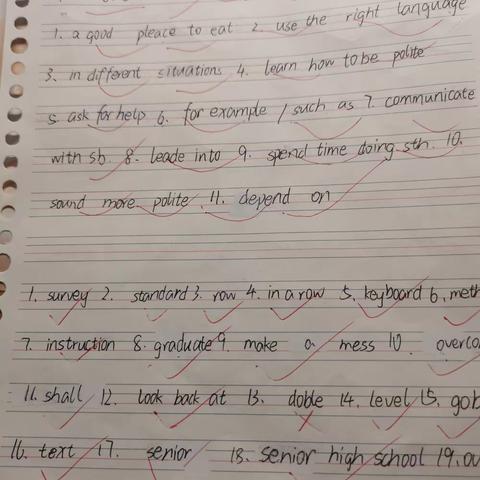 1. a good pleace to eat 2. use the right language
3. in different situations 4. learn how to be polite
5. ask for help 6. for example / such as 7. communicate
with sb. 8. leade into 9. spend time doing sth. 10.
sound more polite 11. depend on
1. survey 2. standard 3. row 4. in a row 5. keyboard 6. meth
7. instruction 8. graduate 9. make a mess 10. overco
11. shall 12. look back at 13. doble 14. level 15. gob
16. text 17. senior 18. senior high school 19. ou